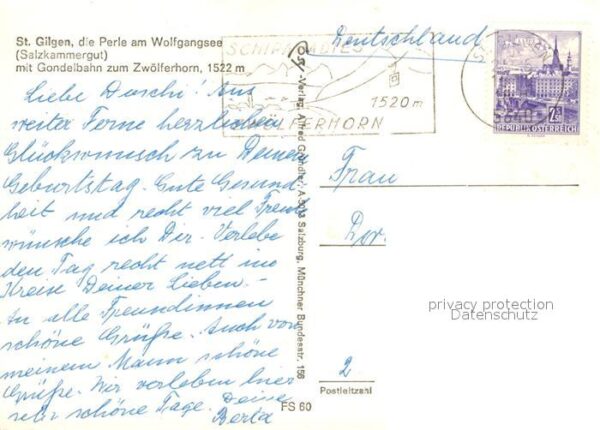 St. Gilgen, die Perle am Wolfgangsee
(Salzkammergut)
mit Gondelbahn zum Zwölferhorn, 1522 m
Liebe Duschi! Aus
weiter Ferne herzlichen
Glückwunsch zu Deinem
Geburtstag. Gute Gesund-
heit und recht viel Freude
wünsche ich Dir. Verlebe
den Tag recht nett im
Kreise Deiner Lieben.-
An alle Freundinnen
schöne Grüße. Auch von
meinem Mann schöne
Grüße. Wir verleben hier
sehr schöne Tage. Deine
Berta
FS 60
-Verlag Alfred Gründler, A-5013 Salzburg, Münchner Bundesstr. 156
SCHIPARADIES
1520 m
ZWÖLFERHORN
Deutschland
REPUBLIK ÖSTERREICH
Frau
Dor
privacy protection
Datenschutz
2
Postleitzahl